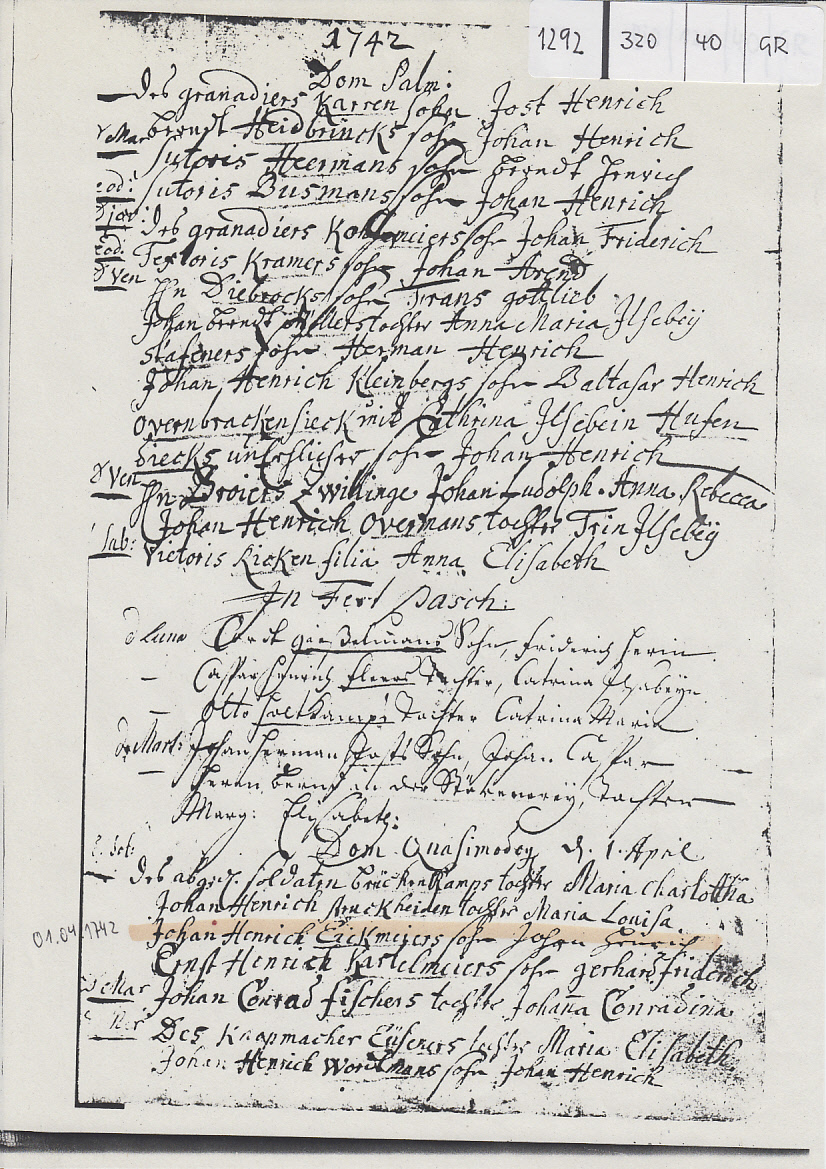 1292 320 40 GR
1742
Dom Palm:
des granadiers Karren sohn Jost Henrich
d Mar Berndt Heidbrincks sohn Johan Henrich
Sutoris Heermans sohn Berndt Henrich
eod: Sutoris Busmans sohn Johan Henrich
d jov: des granadiers sohn Johan Friderich
eod: Textoris Kramers sohn Johan Arend
d Ven Hn Diebrocks sohn Frans gottlieb
Johan Berndt tochter Anna Maria Ilsebey
Stafeners sohn Herman Henrich
Johan Henrich Kleinbergs sohn Baltasar Henrich
Overnbrackensieck mit Cathrina Ilsebein Hufen
siecks unehlicher sohn Johan Henrich
d Ven Hn Broiers Zwillinge Johan Ludolph. Anna Rebecca
Johan Henrich Overmans tochter Trin Ilsebey
Sab: Victoris Kicken filia Anna Elisabeth
In Fest Pasch:
d Luna Cordt Sohn, Friderich Herm
– Caspar Henrich Tochter, Catrina Ilsabeyn
– Otto Holtkamps Tochter Catrina Maria
d Mart: Johan Herman Sohn, Johan Caspar
– Herm Bernd in der Tochter
Marg: Elisabeth:
Dom Quasimodog d. 1. April
des soldaten Brückenkamps tochter Maria Charlottha
Johan Henrich Struckheiden tochter Maria Louisa.
01.04.1742 Johan Henrich Eickmeiers sohn Johan Heinrich
Ernst Henrich Kastelmeiers sohn gerhard Friderich
d Mar Johan Conrad Fischers tochter Johanna Conradina
Des Knopmacher Eüseners tochter Maria Elisabeth
Johan Henrich Wortmans sohn Johan Henrich